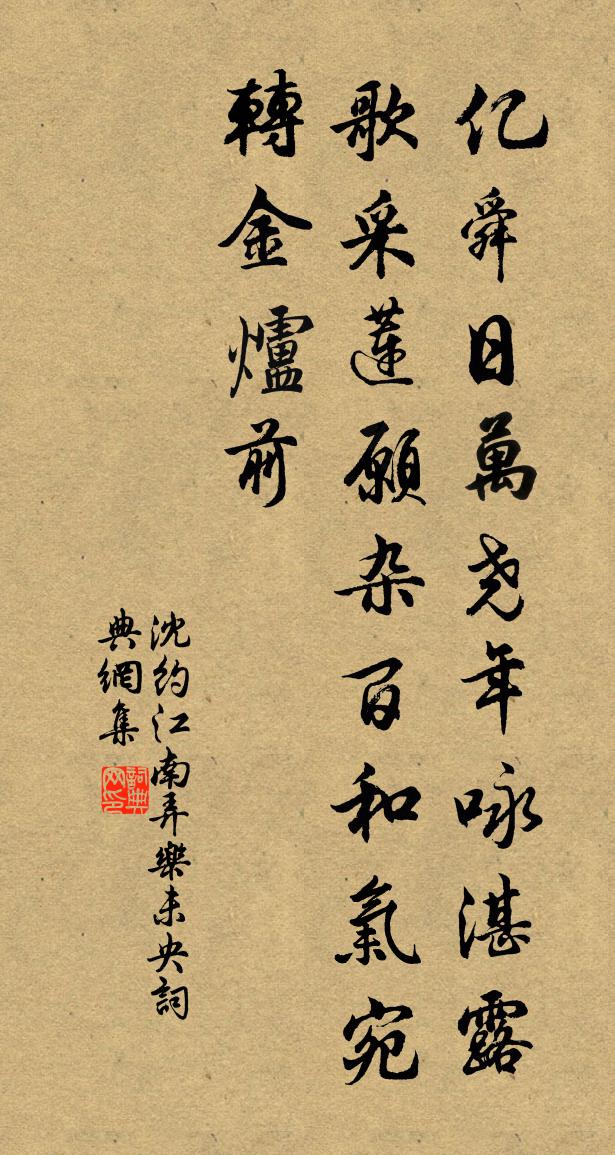 亿舜日萬尧年咏湛露
歌采蓮願杂百和氣宛
轉金爐前
沈约江南弄樂未央詞
典網集
詞典
网印